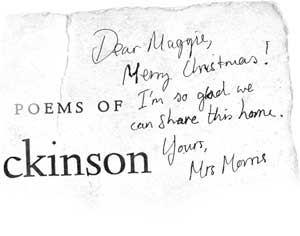 Dear Maggie,
Merry Christmas!
I'm so glad we
can share this home.
Yours,
Mrs Morris
POEMS OF
ckinson